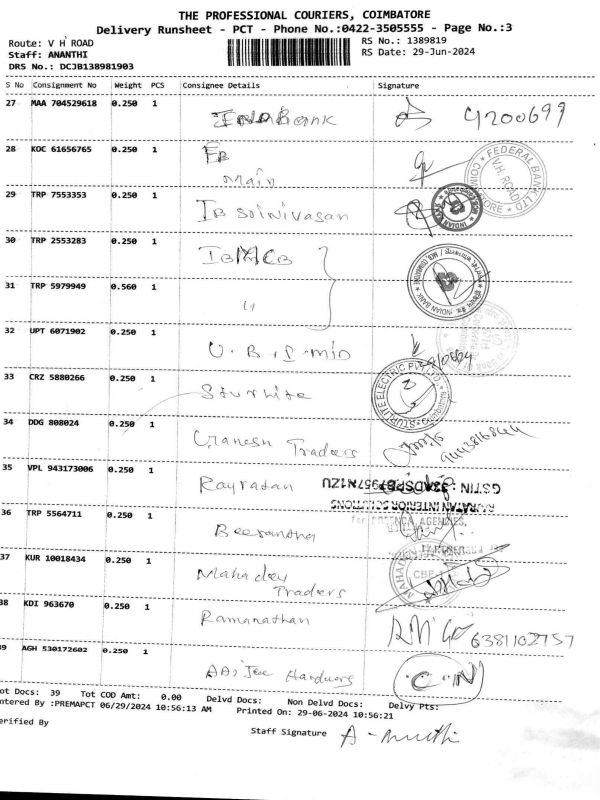 THE PROFESSIONAL COURIERS, COIMBATORE
Delivery Runsheet - PCT - Phone No.:0422-3505555 - Page No.:3
Route: V H ROAD RS No.: 1389819
Staff: ANANTHI RS Date: 29-Jun-2024
DRS No.: DCJB138981903
S No Consignment No Weight PCS Consignee Details Signature
27 MAA 704529618 0.250 1 Bank 9200699
28 KOC 61656765 0.250 1 FB Main
FEDERAL BANK LTD V.H. ROAD
29 TRP 7553353 0.250 1 IB Srinivasan
30 TRP 2553283 0.250 1
INDIAN BANK
31 TRP 5979949 0.560 1 "
32 UPT 6071902 0.250 1 U.B.I-mid
33 CRZ 5880266 0.250 1 Sturlite
STURLITE ELECTRIC PVT LTD
34 DDG 808024 0.250 1 Ganesh Traders
35 VPL 943173006 0.250 1 Rayratan
GSTIN :
RAIRATAN INTERIOR SOLUTIONS
36 TRP 5564711 0.250 1
AGENCIES,
37 KUR 10018434 0.250 1 Mahadev Traders
38 KDI 963670 0.250 1 Ramanathan 6381102757
39 AGH 530172602 0.250 1
Tot Docs: 39 Tot COD Amt: 0.00 Delvd Docs: Non Delvd Docs: Delvy Pts:
Entered By :PREMAPCT 06/29/2024 10:56:13 AM Printed On: 29-06-2024 10:56:21
Verified By Staff Signature